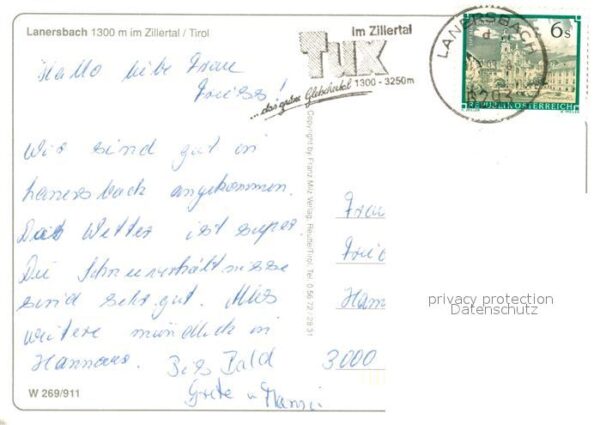 Lanersbach 1300 m im Zillertal / Tirol
im Zillertal
Tux
1300 - 3250m
...das grüne Gletschertal
LANERSBACH
6s
REPUBLIK ÖSTERREICH
Hallo liebe Frau
Wir sind gut in
Lanersbach angekommen.
Das Wetter ist super.
Die Schneeverhältnisse
sind sehr gut. Alles
weitere mündlich in
Hannover. Bis Bald
Grete u
Copyright by Franz Milz Verlag, Reutte/Tirol, Tel. 0 56 72 - 29 31
Frau
Hann
3000
privacy protection
Datenschutz
W 269/911